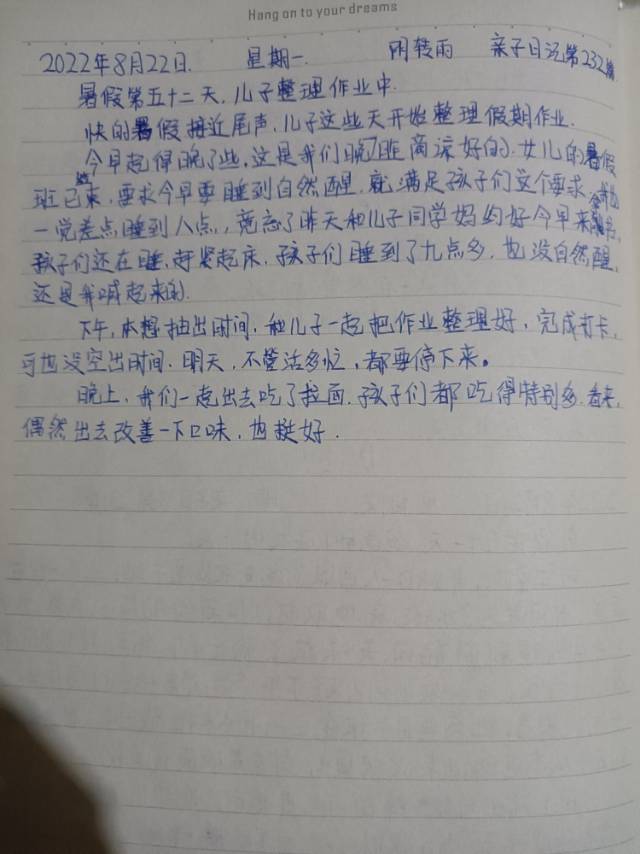 Hang on to your dreams
2022年8月22日. 星期一. 阴转雨 亲子日记第232篇
暑假第五十二天.儿子整理作业中.
快的暑假接近尾声.儿子这些天开始整理假期作业.
今早起得晚了些.这是我们晚上商谅好的.女儿的暑假
班已结束,要求今早要睡到自然醒.就满足孩子们这个要求.
一觉差点睡到八点,竟忘了昨天和儿子同学妈约好今早来
孩子们还在睡.赶紧起床.孩子们睡到了九点多.也没自然醒,
还是我喊起来的.
下午,本想抽出时间.和儿子一起把作业整理好,完成打卡.
可也没空出时间.明天,不管活多忙,都要停下来。
晚上,我们一起出去吃了拉面.孩子们都吃得特别多.看来,
偶然出去改善一下口味.也挺好.